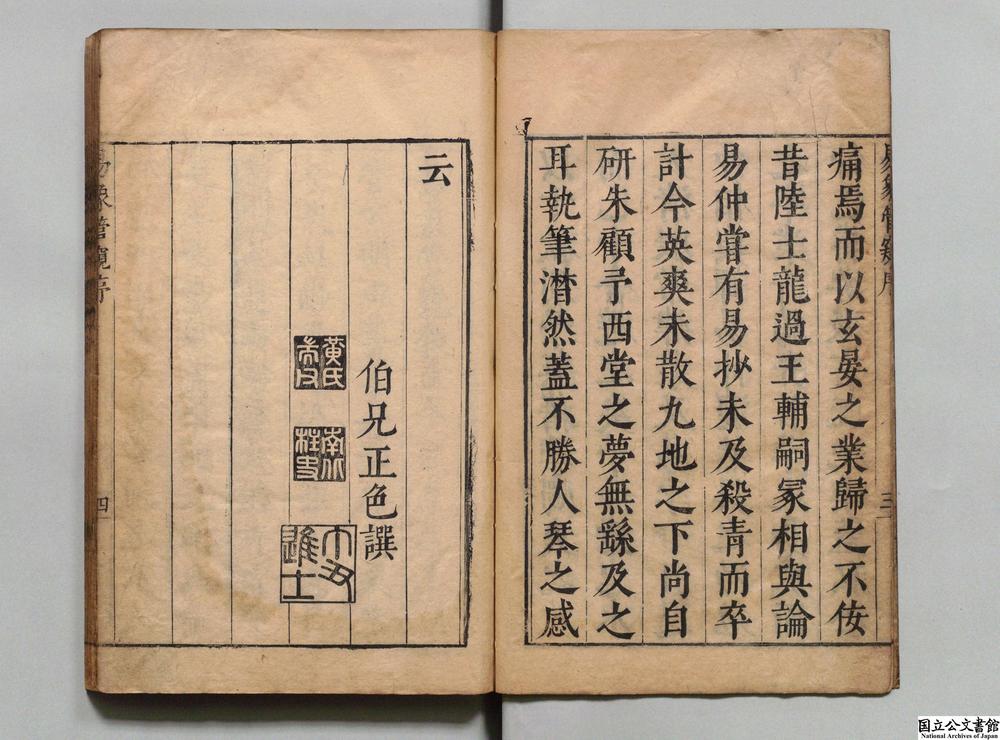 易象管窺序
三
痛焉而以玄晏之業歸之不侫
昔陸士龍過王輔嗣冢相與論
易仲嘗有易抄未及殺青而卒
計今英爽未散九地之下尚自
研朱顧予西堂之夢無繇及之
耳執筆潸然蓋不勝人琴之感
云
伯兄正色譔
黃氏
南
丁丑
進士
易象管窺序
四
国立公文書館
National Archives of Japan